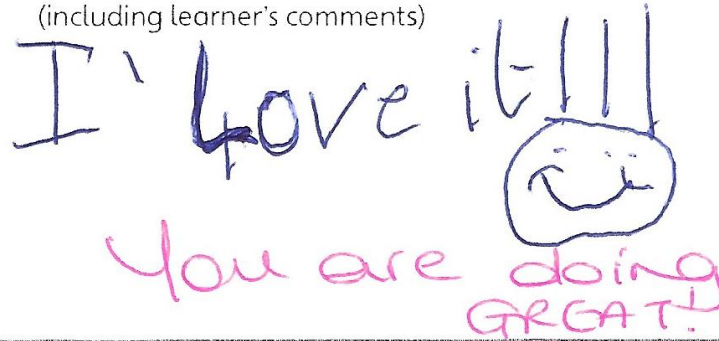 (including learner's comments)
I` Love it!!!
You are doing
GREAT!